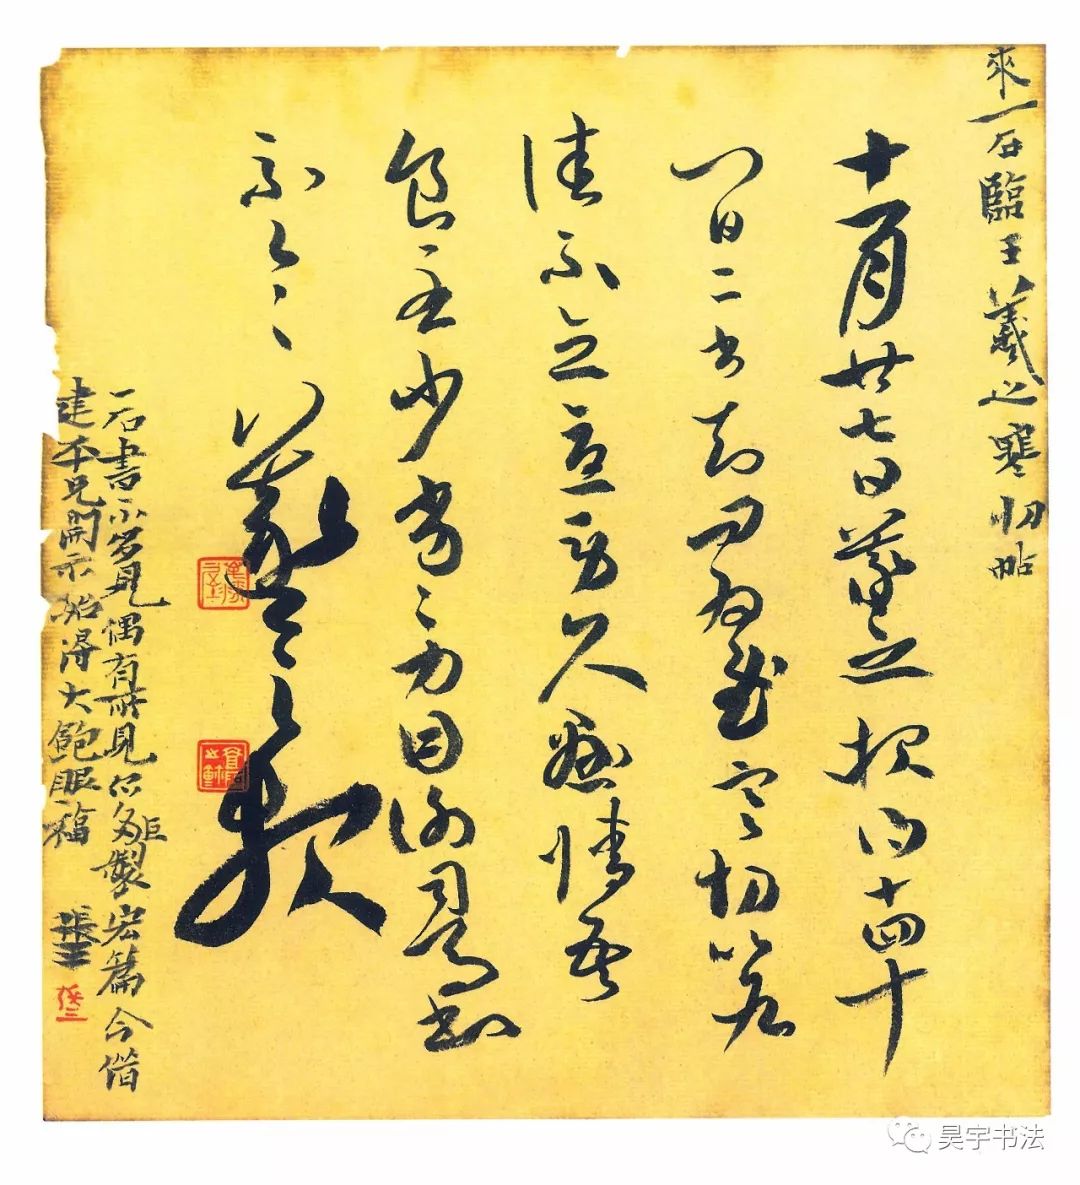 來一石臨王羲之寒切帖
十一月廿七日羲之報得十四十
八日二書知問為慰寒切比各
佳不念憂勞久懸情吾
食至少劣劣力因謝司馬書
不一一羲之報
一石書不多見偶有所見巨製宏篇今借
建平兄開示始得大飽眼福 張三
昊宇书法